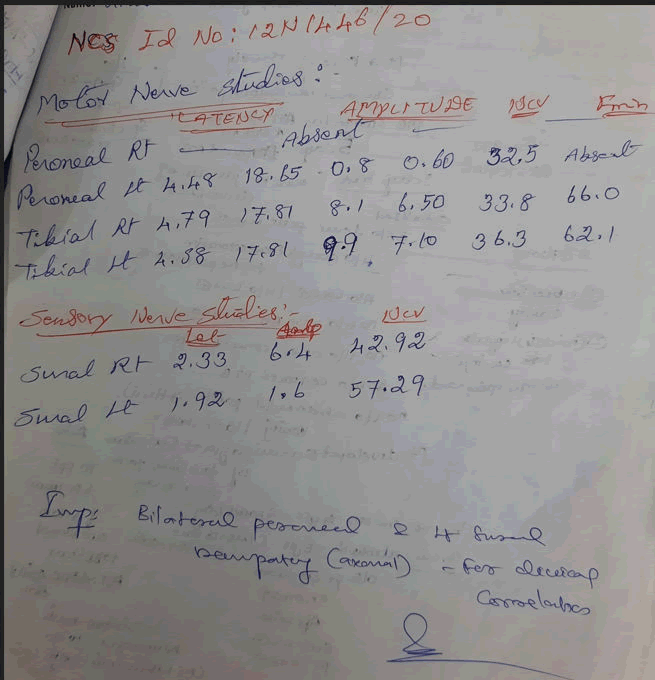 NCS Id No: 12N1446/20
Motor Nerve Studies:-
LATENCY AMPLITUDE NCV Fmin
Peroneal Rt — Absent —
Peroneal Lt 4.48 18.65 0.8 0.60 32.5 Absent
Tibial Rt 4.79 17.81 8.1 6.50 33.8 66.0
Tibial Lt 4.38 17.81 9.9 7.10 36.3 62.1
Sensory Nerve Studies:-
Lat Amp NCV
Sural Rt 2.33 6.4 42.92
Sural Lt 1.92 1.6 57.29
Imp: Bilateral peroneal & Lt sural
(axonal) - For clinical
Correlation